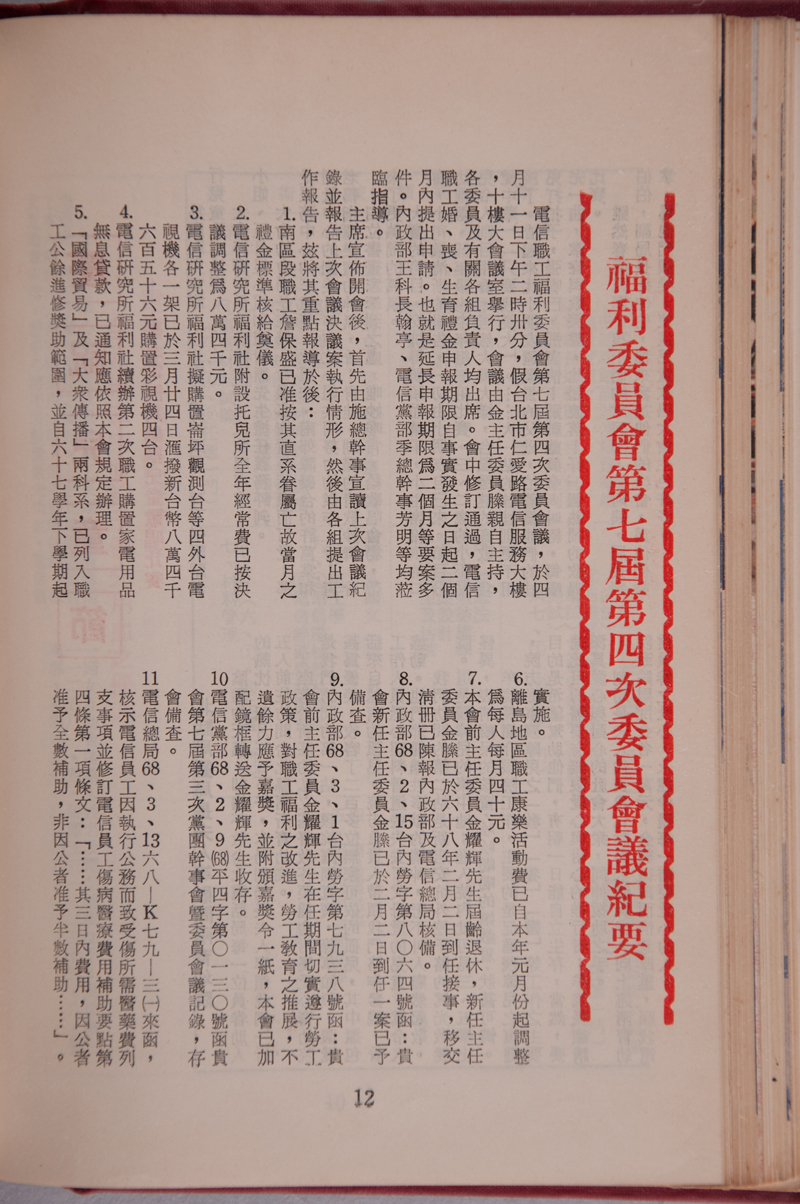 福利委員會第七屆第四次委員會議紀要
電信職工福利委員會第七屆第四次委員會議，於四
月十一日下午二時卅分，假台北市仁愛路電信服務大樓
，十樓大會議室舉行，會議由金主任委員滕親自主持，
各委員及有關各組負責人均出席。會中修訂通過，電信
職工婚、喪、生育禮金申報期限自事實發生之日起二個
月內提出申請。也就是延長申報期限爲二個月等要案多
件。內政部王科長翰亭、電信黨部季總幹事芳明等均蒞
臨指導。
主席宣佈開會後，首先由施總幹事宣讀上次會議紀
錄並報告上次會議決議案執行情形，然後由各組提出工
作報告，茲將其重點報導於後：
1.南區段職工詹保盛已准按其直系眷屬亡故當月之
禮金標準核給奠儀。
2.電信研究所福利社附設托兒所全年經常費已按決
議調整爲八萬四千元。
3.電信研究所福利社擬購置崙坪觀測台等四外台電
視機各一架已於三月廿四日滙撥新台幣八萬四千
六百五十六元購置彩視機四台。
4.電信研究所福利社續辦第二次職工購置家電用品
無息貸款，已通知應依照本會規定辦理。
5.「國際貿易」及「大衆傳播」兩科系，已列入職
工公餘進修獎助範圍，並自六十七學年下學期起
實施。
6.離島地區職工康樂活動費已自本年元月份起調整
爲每人每月四十元。
7.本會前主任委員金耀輝先生屆齡退休，新任主任
委員金滕已於六十八年二月二日到任接事，移交
清冊已陳報內政部及電信總局核備。
8.內政部68、2、15台內勞字第八〇六四號函：貴
會新任主任委員金滕已於二月二日到任一案已予
備查。
9.內政部68、3、1台內勞字第七九三八號函：貴
會前主任委員金耀輝先生在任期間切實遵行勞工
政策，對職工福利之改進，勞工教育之推展，不
遺餘力應予嘉獎，並附頒嘉獎令一紙，本會已加
配鏡框轉送金耀輝先生收存。
10電信黨部68、2、9(68)平四字第〇一三〇號函貴
會第七屆第三次黨團幹事會暨委員會議記錄，存
會備查。
11電信總局68、3、13六八—K七九—三㈠來函，
核示電信員工因執行公務而致受傷所需醫藥費列
支事項並修訂電信員工傷病醫療費用補助要點第
四條第一項條文：「……其三日內費用，因公者
准予全數補助，非因公者准予半數補助……」。
12